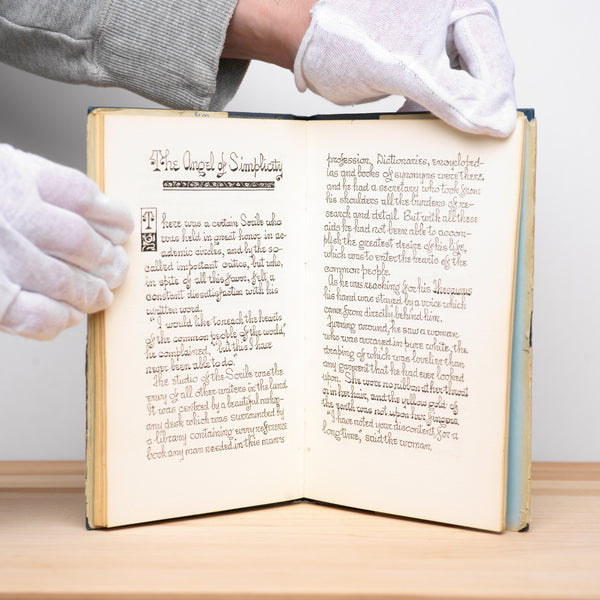 The Angel of Simplicity
There was a certain Scribe who
was held in great honor in ac-
ademic circles, and by the so-
called important critics, but who,
in spite of all this favor, felt a
constant dissatisfaction with his
written word.
"I would like to reach the hearts
of the common people of the world,"
he complained, "but this I have
never been able to do."
The studio of the Scribe was the
envy of all other writers in the land.
It was centred by a beautiful mahog-
any desk which was surrounded by
a library containing every reference
book any man needed in this man's
profession. Dictionaries, encycloped-
ias and books of synonyms were there,
and he had a secretary who took from
his shoulders all the burdens of re-
search and detail. But with all these
aids he had not been able to accom-
plish the greatest desire of his life,
which was to enter the hearts of the
common people.
As he was reaching for his Thesaurus
his hand was stayed by a voice which
came from directly behind him.
Turning around, he saw a woman
who was arrayed in pure white, the
draping of which was lovelier than
any garment that he had ever looked
upon. She wore no ribbon at her throat
or in her hair, and the yellow gold of
the earth was not upon her fingers.
"I have noted your discontent for a
long time," said the woman.